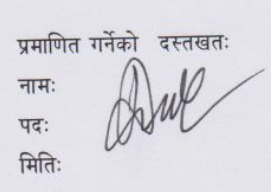 प्रमाणित गर्नेको दस्तखतः
नामः
पदः
मितिः